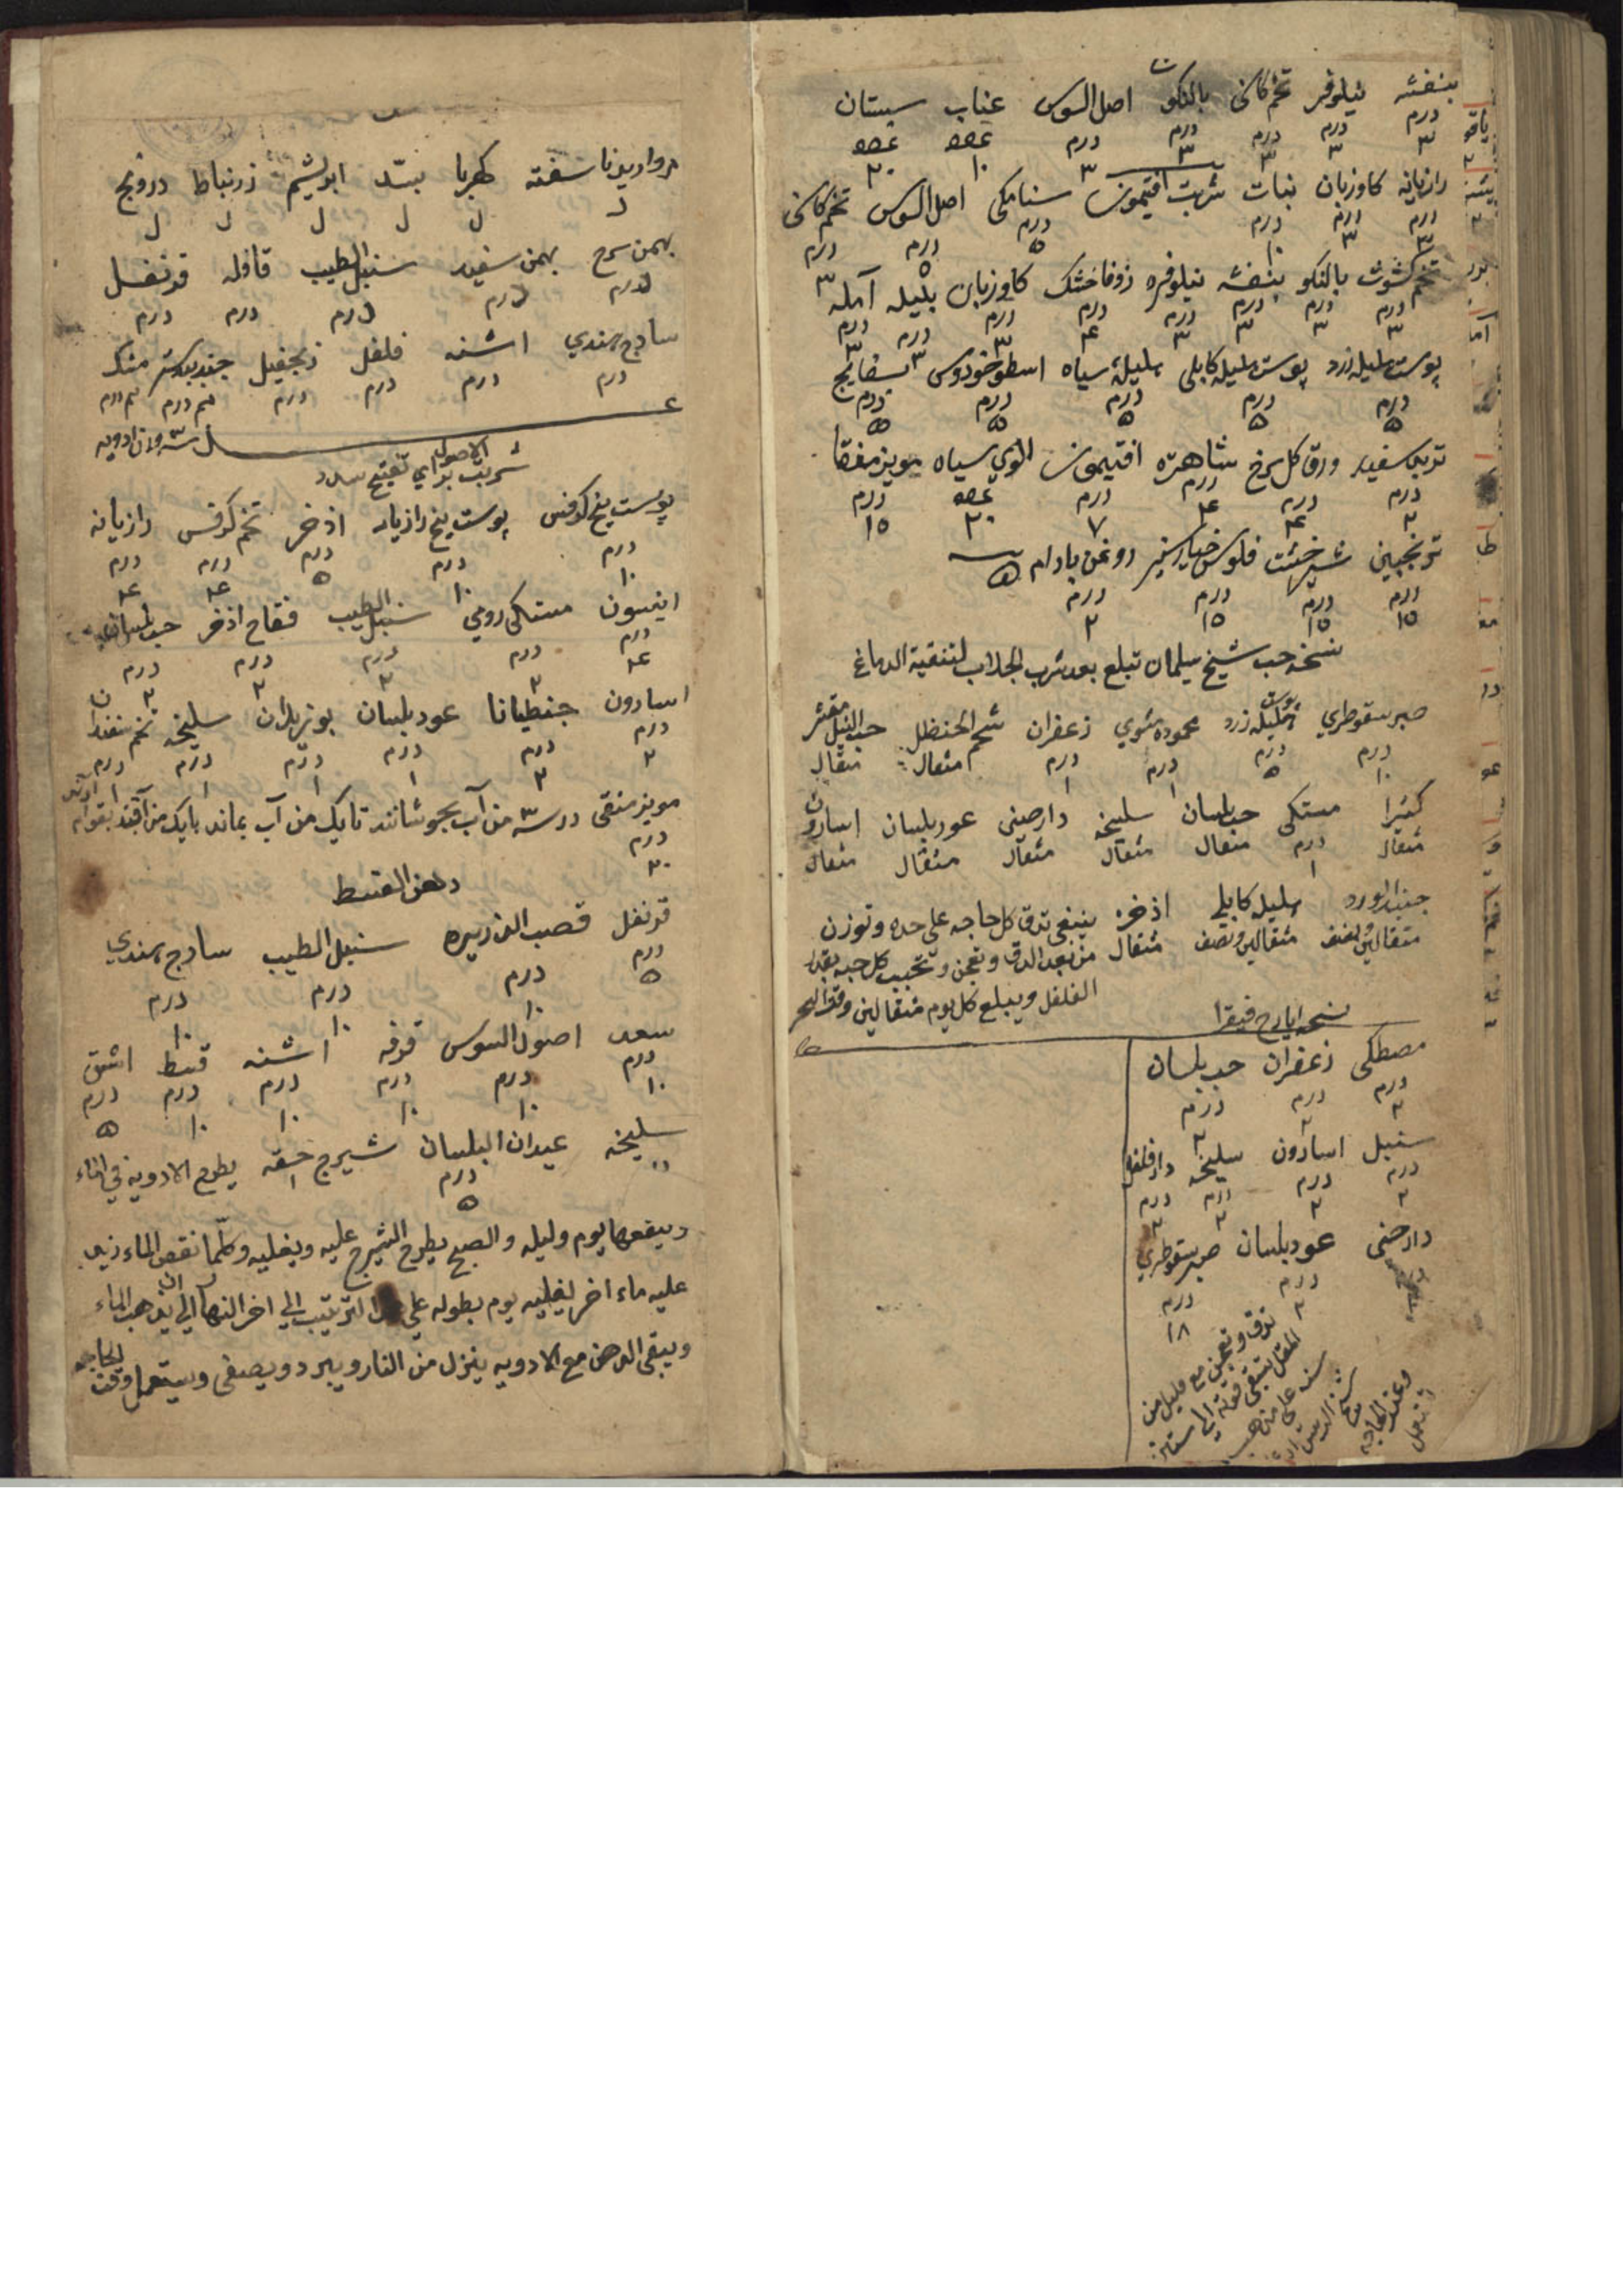 بنفشه نیلوفر تخم کاسنی بالنکو اصل السوس عناب سپستان
درم درم درم درم درم عدد عدد
۳ ۳ ۳ ۳ ۳ ۱۰ ۲۰
رازیانه کاوزبان نبات شربت افتیمون سنامکی اصل السوس تخم کاسنی
درم درم درم درم درم درم
۳ ۳ ۱۰ ۵ ۵ ۳
تخم کشوث بالنکو بنفشه نیلوفره زوفا خشک کاوزبان بلیله آمله
درم درم درم درم درم درم درم درم
۳ ۳ ۳ ۳ ۴ ۳ ۳ ۳
پوست هلیله زرد پوست هلیله کابلی هلیلهٔ سیاه اسطوخودوس بسفایج
درم درم درم درم درم
۵ ۵ ۵ ۵ ۵
تربد سفید ورق کل سرخ شاهتره افتیمون الوی سیاه مویز منقا
درم درم درم درم عدد درم
۲ ۴ ۴ ۷ ۲۰ ۱۵
ترنجبین شیرخشت فلوس خیارشنبر روغن بادام
درم درم درم درم
۱۵ ۱۵ ۱۵ ۲
نسخه حب شیخ سلیمان تبلع بعد شرب الجلاب لتنقیة الدماغ
صبر سقوطری پوست هلیله زرد محموده مشوی زعفران شحم الحنظل حب النیل مقشر
درم درم درم درم مثقال مثقال
۱۰ ۵ ۱ ۱
کثیرا مستکی حب بلسان سلیخه دارصینی عود بلسان اسارون
مثقال درم مثقال مثقال مثقال مثقال مثقال
۱
هلیله کابلی اذخر ینبغی تدق کل حاجه علی حده وتوزن
مثقالین ونصف مثقالین ونصف مثقال من بعد الدق وتعجن وتحبب کل حبه بقدر
الفلفل ویبلع کل یوم مثقالین وقت السحر
نسخه ایارج فیقرا
مصطکی زعفران حب بلسان
درم درم درم
۲ ۲ ۲
سنبل اسارون سلیخه دارفلفل
درم درم درم درم
۲ ۲ ۲ ۲
دارصنی عود بلسان صبر سقوطری
درم درم
۲ ۱۸
تدق وتعجن مع قلیل من
العسل تبقی قوته الی سنتین
مروارید ناسفته کهربا بسّد ابریشم زرنباط درونج
بهمن سرخ بهمن سفید سنبل الطیب قاقله قرنفل
درم درم درم درم درم
سادج هندی اشنه فلفل زنجفیل جندبیدستر مشک
درم درم درم درم نیم درم نیم درم
سه وزن ادویه
شربت الاصول برای تفتیح سدد
پوست بیخ کرفس پوست بیخ رازیانه اذخر تخم کرفس رازیانه
درم درم درم درم درم
۱۰ ۱۰ ۵ ۴ ۴
انیسون مستکی رومی سنبل الطیب فقاح اذخر حب بلسان
درم درم درم درم درم
۴ ۲ ۲ ۲ ۲
اسارون جنطیانا عود بلسان بوزیدان سلیخه تخم
درم درم درم درم درم درم
۲ ۲ ۱ ۱ ۱ ۱
مویز منقی در سه من آب بجوشانند تا یک من آب بماند با یک من قند بقوام
درم
۲۰
دهن القسط
قرنفل قصب الذریره سنبل الطیب سادج هندی
درم درم درم درم
۵ ۱۰ ۱۰ ۱۰
سعد اصول السوس قرفه اشنه قسط اشق
درم درم درم درم درم درم
۱۰ ۱۰ ۱۰ ۱۰ ۱۰ ۵
سلیخه عیدان البلسان شیرج حقه یطرح الادویه فی الماء
درم
۵
وینقعها یوم ولیله والصبح یطرح الشیرج علیه ویغلیه وکلما نقص الماء زید
علیه ماء اخر لیغلیه یوم بطوله علی الترتیب الی اخر النهار الی ان یذهب الماء
ویبقی الدهن مع الادویه ینزل من النار ویبرد ویصفی ویستعمل وقت الحاجه